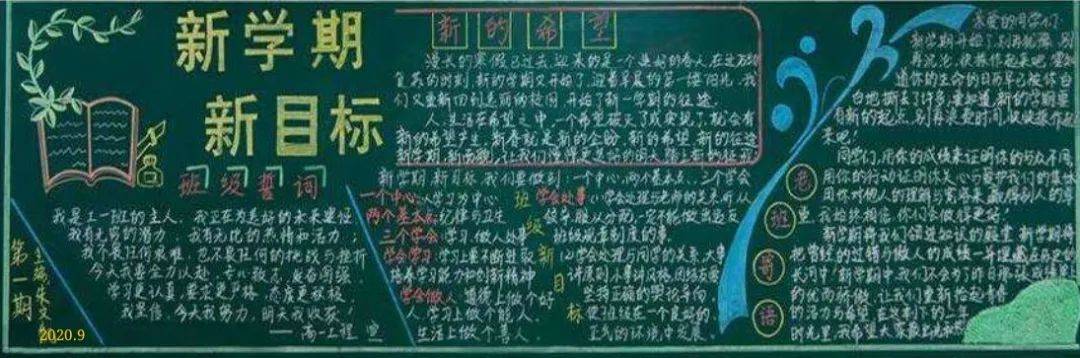 新学期
新目标
班级誓词
我是工一班的主人，我正在为美好的未来奠恒
我有无穷的潜力，我有无比的热情和活力；
我不畏任何艰难，也不畏任何的挑战与挫折
今天我要全力以赴，专心致了，发奋图强
学习更认真，要求更严格，态度更积极；
我坚信，今天我努力，明天我收获
——高一工程
第一期
主编:朱文
2020.9
新的希望
漫长的寒假已过去，迎来的是一个美好的春天，在这万物
复苏的时刻，新的学期又开始了，迎着早晨的第一缕阳光，我
们又重新回到美丽的校园，开始了新一学期的征途。
人，生活在希望之中，一个希望破灭了或实现了，就会有
新的希望产生，新春就是新的企盼，新的希望，新的征途
新学期，新目标，我们要做到，一个中心，两个基本点，三个学会
一个中心：以学习为中心
两个基本点：纪律与卫生
三个学会：学习，做人，处事
学会学习：学习上要不断进取
培养学习能力和创新精神
学会做人：道德上做个好
人，学习上做个能人，
生活上做个善人，
班级新目标
学会处事
班级规章制度的事，
(2)学会处理与同学的关系，大事
讲原则，小事讲风格，团结友爱
坚持正确的舆论导向，
使班级在一个良好的，
正气的环境中发展。
老班寄语
亲爱的同学们：
新学期开始了，别再犹豫，别
再沉沦，快振作起来吧，要知
道你的生命的日历早已被你白
白地撕去了许多，要知道，新的学期要
有新的起点，别再浪费时间，快快振作起
来吧！
同学们，用你的成绩来证明你的与众不同，
用你的行动证明你关心与爱护我们的集体
用你对他人的理解与宽容来赢得别人的尊
重，我始终相信，你们会做得更好！
新学期将我们领进知识的殿堂，新学期将
把曾经的过错与傲人的成绩一并埋藏在历史
的优而骄傲，让我们重新拾起青春
的活力与希望，在这剩下的二年